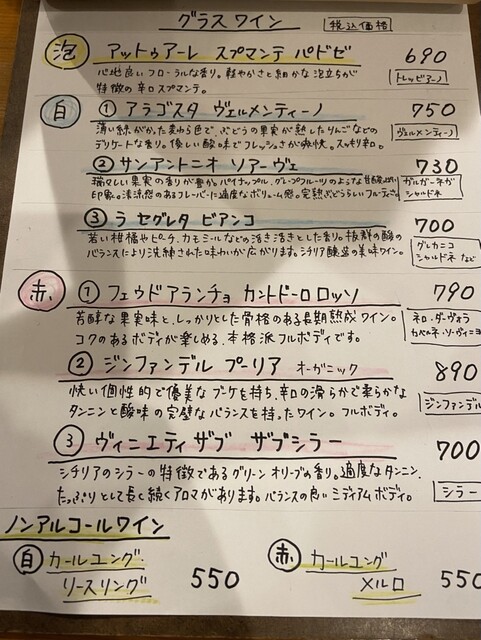 グラスワイン 税込価格
泡 アットゥアーレ スプマンテ パドゼ 690
心地良いフローラルな香り。軽やかさと細かな泡立ちが
特徴の辛口スプマンテ。
トレッビアーノ
白 ① アラゴスタ ヴェルメンティーノ 750
薄い緑がかった麦わら色で、ぶどうの果実が熟したりんごなどの
デリケートな香り。優しい酸味でフレッシュさが爽快。スッキリ辛口。
ヴェルメンティーノ
② サンアントニオ ソアーヴェ 730
瑞々しい果実の香りが豊か。パイナップル、グレープフルーツのような
印象。清涼感のあるフレーバーに適度なボリューム感。完熟ぶどうらしいフルーティー
ガルガーネガ
シャルドネ
③ ラ セグレタ ビアンコ 700
若い柑橘やピーチ、カモミールなどの活き活きとした香り。抜群の酸の
バランスにより洗練された味わいが広がります。シチリア醸造の美味ワイン。
グレカニコ
シャルドネ など
赤 ① フェウドアランチョ カントドーロ ロッソ 790
芳醇な果実味と、しっかりとした骨格のある長期熟成ワイン。
コクのあるボディが楽しめる、本格派フルボディです。
ネロ・ダーヴォラ
カベルネ・ソーヴィニヨ
② ジンファンデル プーリア オーガニック 890
快い個性的で優美なブーケを持ち、辛口の滑らかで柔らかな
タンニンと酸味の完璧なバランスを持ったワイン。フルボディ。
ジンファンデル
③ ヴィニエティ ザブ ザブシラー 700
シチリアのシラーの特徴であるグリーンオリーブの香り。適度なタンニン、
たっぷりとして長く続くアロマがあります。バランスの良いミディアムボディ。
シラー
ノンアルコールワイン
白 カールユング リースリング 550
赤 カールユング メルロ 550